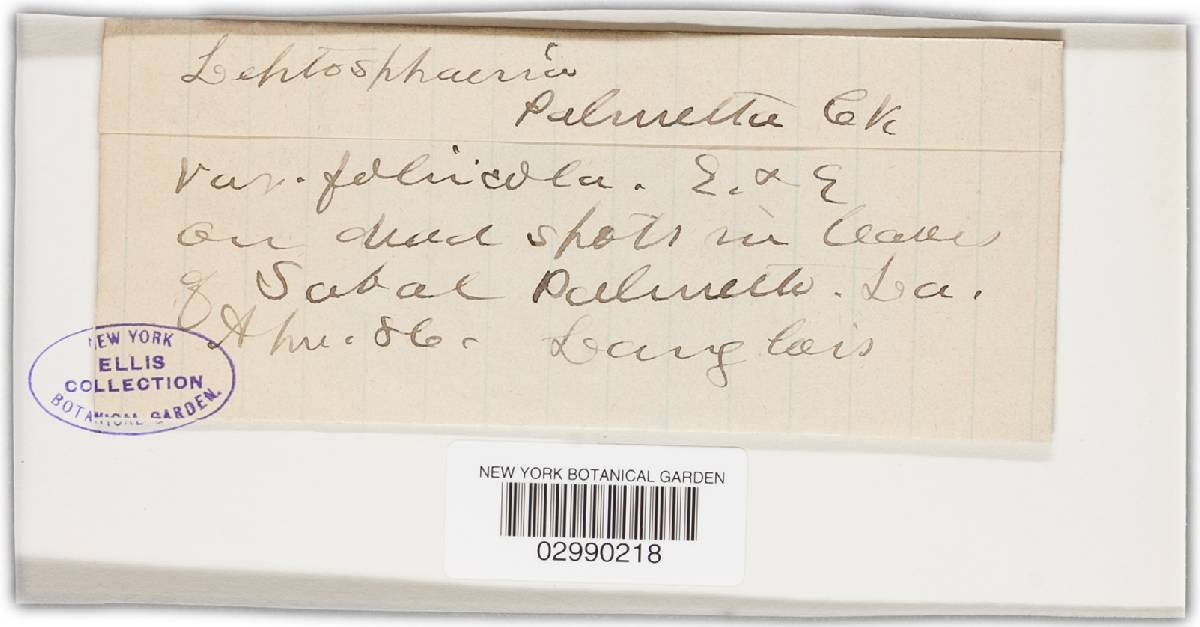 Leptosphaeria
Palmetta Ck
var. foliicola. E. & E
on dead spots in leaves
of Sabal Palmetto. La.
Apr. 86. Langlois
NEW YORK
ELLIS
COLLECTION
BOTANICAL GARDEN.
NEW YORK BOTANICAL GARDEN
02990218